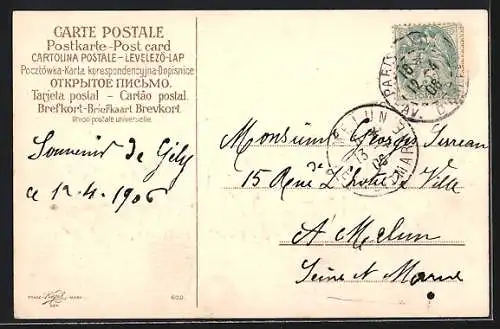 CARTE POSTALE
Postkarte - Post card
CARTOLINA POSTALE - LEVELEZŐ-LAP
Pocztówka - Karta korespondencyjna - Dopisnice
ОТКРЫТОЕ ПИСЬМО.
Tarjeta postal - Cartão postal.
Brefkort - Briefkaart Brevkort
Union postale universelle.
Souvenir de
ce 12-4 1906
Monsieur Georges
15 Rue de l'hotel de Ville
A Melun
Seine et Marne
PARIS
AV.
MELUN
MARNE
600